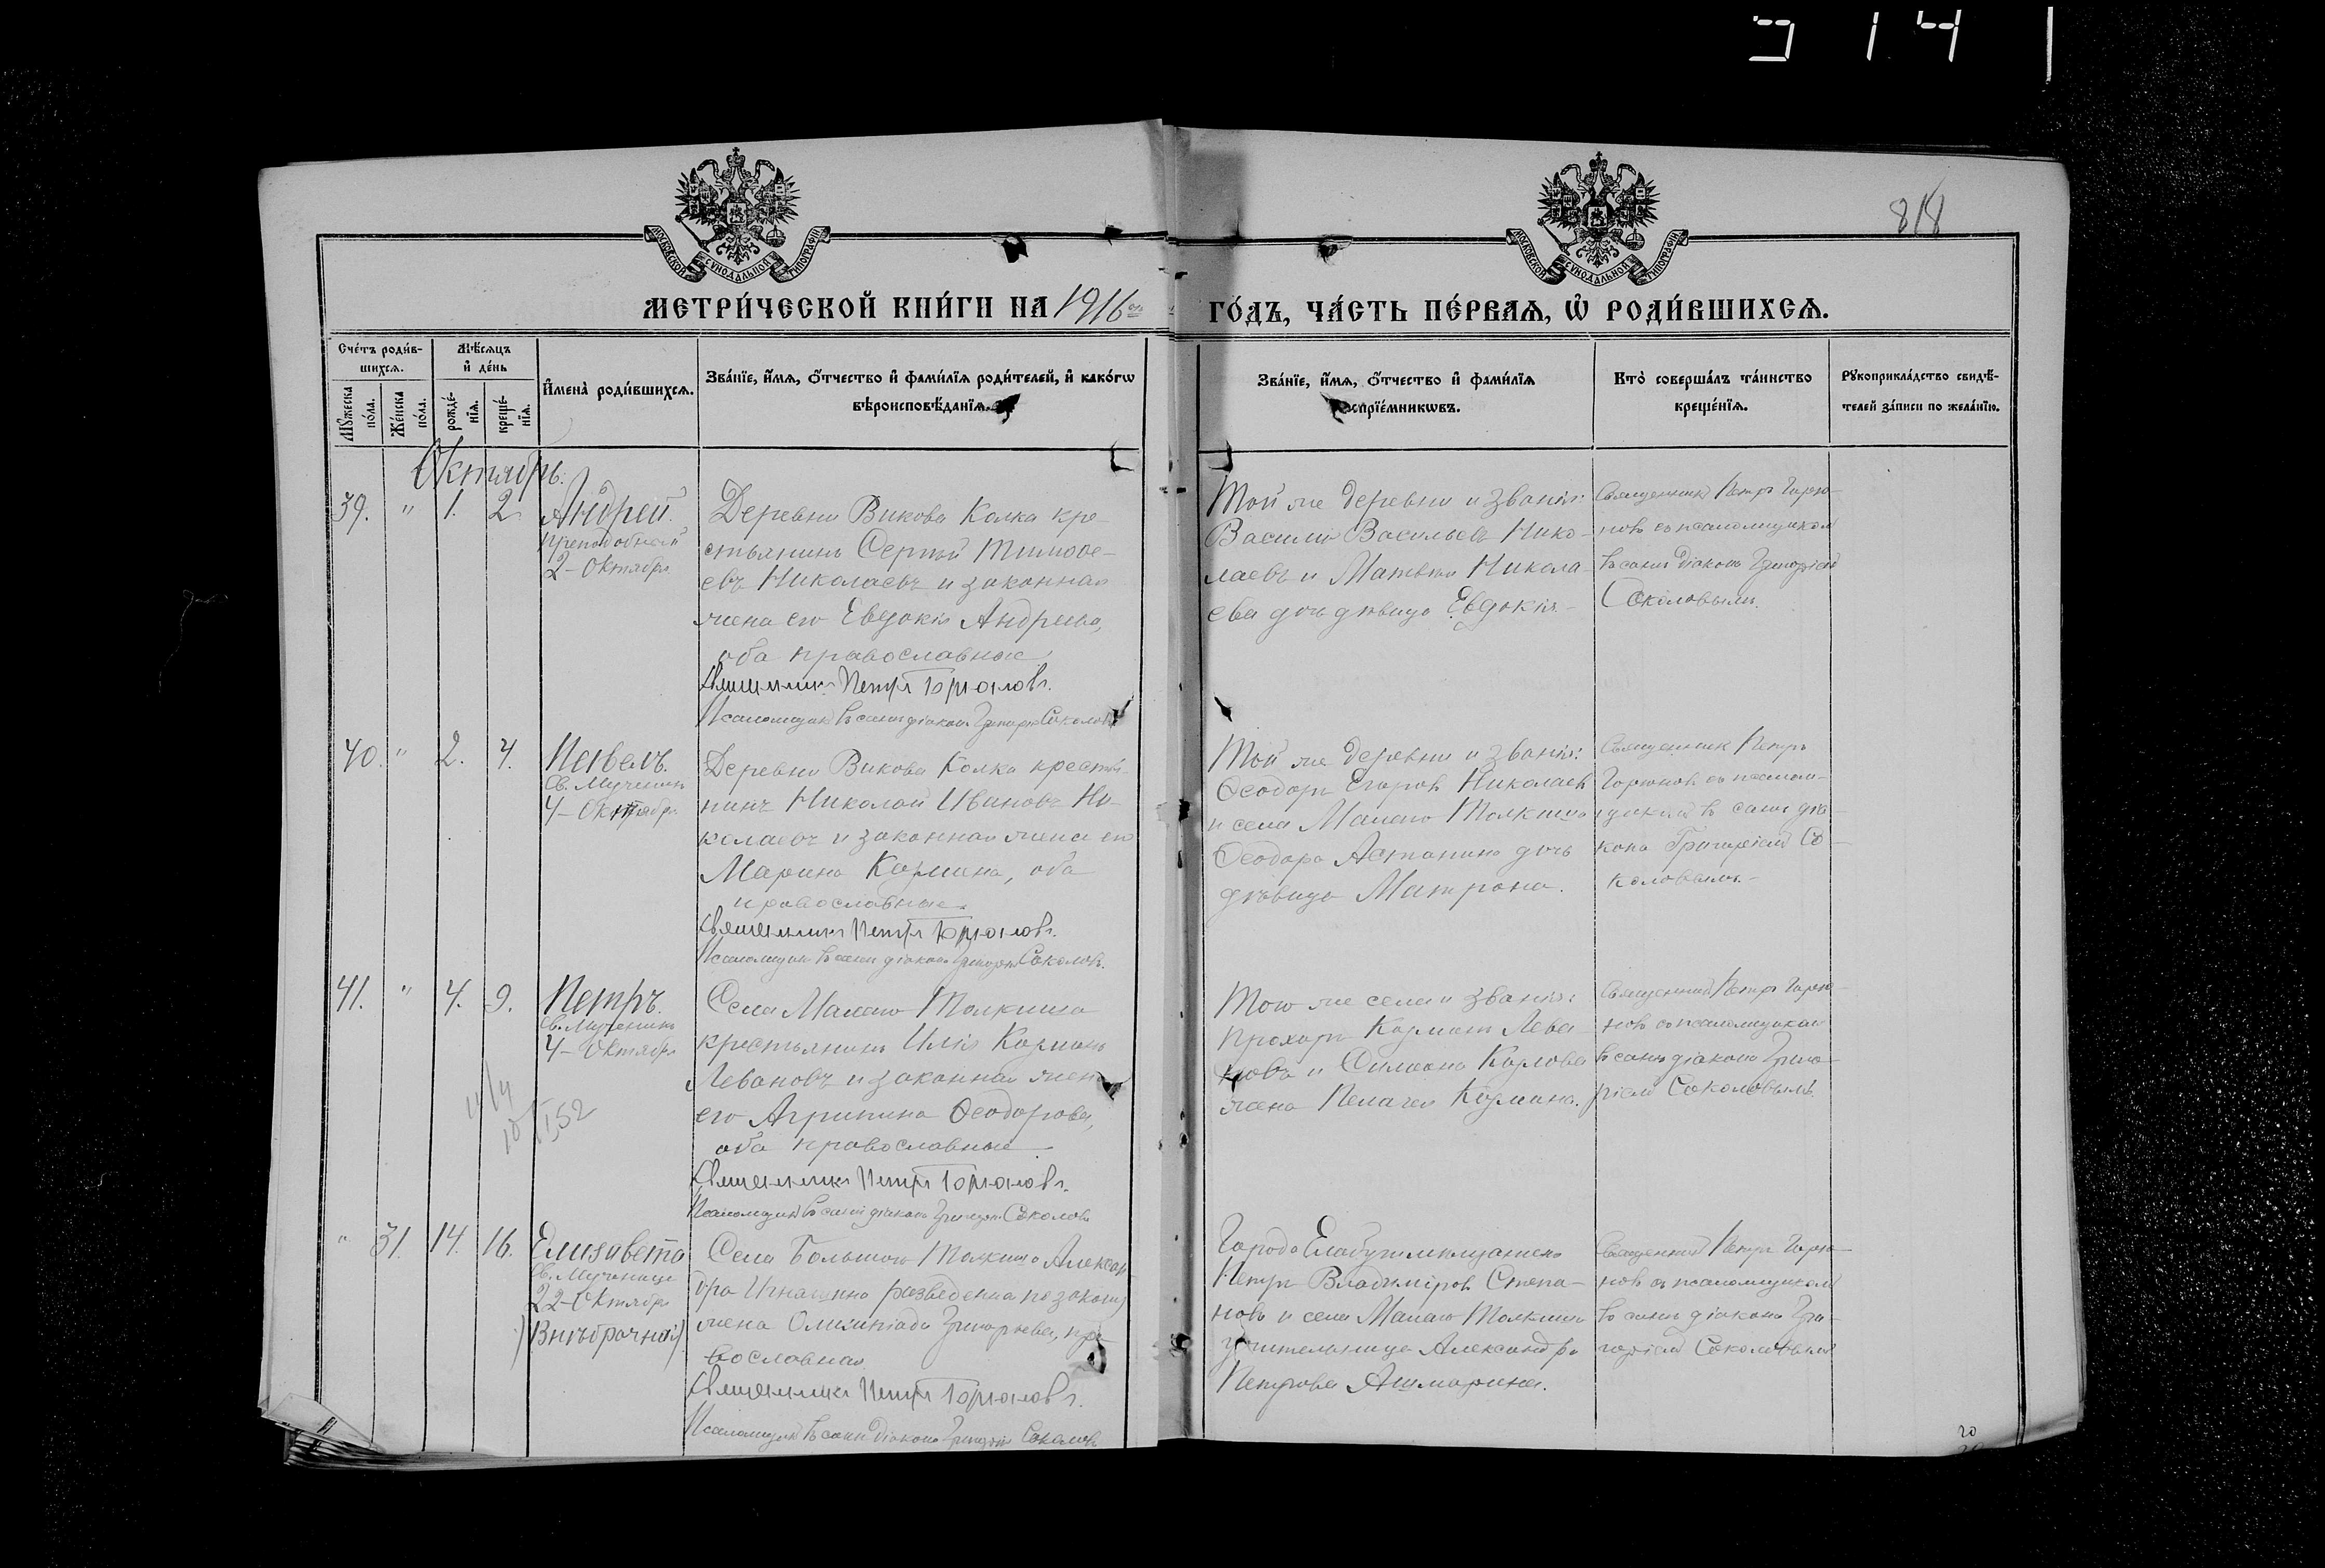 314
818
МОСКОВСКОЙ СѴНОДАЛЬНОЙ ТИПОГРАФІИ
МОСКОВСКОЙ СѴНОДАЛЬНОЙ ТИПОГРАФІИ
МЕТРИ́ЧЕСКОЙ КНИ́ГИ НА 1916 ГО́ДЪ, ЧА́СТЬ ПЕ́РВАѦ, Ѡ҆ РОДИ́ВШИХСѦ.
Сче́тъ роди́в-
шихсѧ.
Мѣ́сѧцъ
и҆ де́нь
Мꙋ́жеска
по́ла.
Же́нска
по́ла.
рожде́-
нїѧ.
креще́-
нїѧ.
И҆мена̀ роди́вшихсѧ.
Зва́нїе, и҆́мѧ, ѻ҆́тчество и҆ фами́лїѧ роди́телей, и҆ како́гѡ
вѣроисповѣ́данїѧ.
Зва́нїе, и҆́мѧ, ѻ҆́тчество и҆ фами́лїѧ
воспрїе́мникѡвъ.
Кто̀ соверша́лъ та́инство
креще́нїѧ.
Рꙋкоприкла́дство свидѣ́-
телей за́писи по жела́нїю.
Октябрь.
39. " 1. 2.
Андрей.
преподобный
2 - Октября
Деревни Викова Колка кре-
стьянинъ Сергѣй Тимоѳе-
евъ Николаевъ и законная
жена его Евдокія Андреева,
оба православные
Священникъ Петръ Горюновъ.
Псаломщикъ въ санѣ діакона Григорій Соколовъ
Той же деревни и званія:
Василій Васильевъ Нико-
лаевъ и Матвѣя Никола-
ева дочь дѣвица Евдокія.-
Священникъ Петръ Горю-
новъ съ псаломщикомъ
въ санѣ діакона Григоріемъ
Соколовымъ.
40. " 2. 4.
Павелъ.
Св. Мученикъ
4 - Октября
Деревни Викова Колка крестья-
нинъ Николай Ивановъ Ни-
колаевъ и законная жена его
Марина Козмина, оба
православные.
Священникъ Петръ Горюновъ.
Псаломщикъ въ санѣ діакона Григорій Соколовъ.
Той же деревни и званія:
Ѳеодоръ Егоровъ Николаевъ
и села Малаго Толкиша
Ѳеодора Астанина дочь
дѣвица Матрона.
Священникъ Петръ
Горюновъ съ псалом-
щикомъ въ санѣ діа-
кона Григоріемъ Со-
коловымъ.-
41. " 4. 9.
Петръ.
Св. Мученикъ
4 - Октября
Села Малаго Толкиша
крестьянинъ Илія Козминъ
Левановъ и законная жена
его Агрипина Ѳеодорова,
оба православные.
Священникъ Петръ Горюновъ.
Псаломщикъ въ санѣ діакона Григорій Соколовъ
Того же села и званія:
Прохоръ Козминъ Лева-
новъ и Симеона Козлова
жена Пелагея Козмина.
Священникъ Петръ Горю-
новъ съ псаломщикомъ
въ санѣ діакона Григо-
ріемъ Соколовымъ.
" 31. 14. 16.
Елизавета
Св. Мученица
22 - Октября
(Внѣбрачный)
Села Большого Толкиша Алексан-
дра Игнашина разведенная по закону
жена Олимпіада Григорьева, пра-
вославная
Священникъ Петръ Горюновъ.
Псаломщикъ въ санѣ діакона Григорій Соколовъ
Города Елабуги мѣщанинъ
Петръ Владиміровъ Степа-
новъ и села Малаго Толкиша
учительница Александра
Петрова Ашмарина.
Священникъ Петръ Горю-
новъ съ псаломщикомъ
въ санѣ діакона Гри-
горіемъ Соколовымъ
20